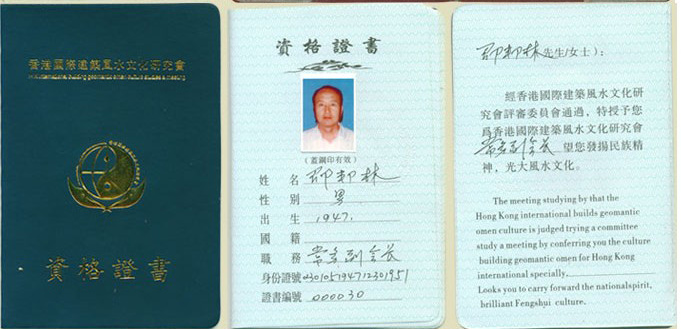 香港國際建築風水文化研究會
資格證書
資格證書
（蓋鋼印有效）
姓 名 邦林
性 别 男
出 生 1947.
國 籍
職 務 常務副會長
身份證號
證書編號 000030
邦林先生/女士）：
經香港國際建築風水文化研
究會評審委員會通過，特授予您
爲香港國際建築風水文化研究會
常務副會長 望您發揚民族精
神，光大風水文化。
The meeting studying by that the
Hong Kong international builds geomantic
omen culture is judged trying a committee
study a meeting by conferring you the culture
building geomantic omen for Hong Kong
international specially,
Looks you to carry forward the nationalspirit,
brilliant Fengshui culture.